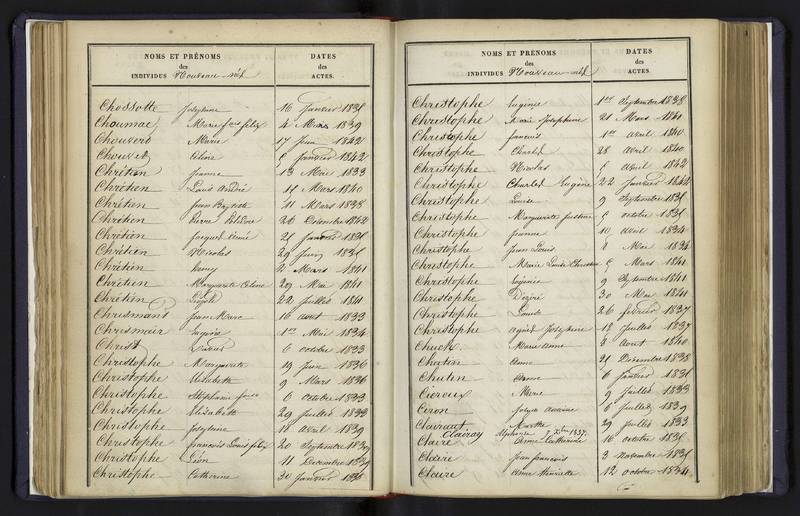 NOMS ET PRÉNOMS
des
INDIVIDUS Nouveau-nés
DATES
des
ACTES.
Chossotte Joséphine 16 Janvier
Choumac 4 Mars 1839
Chouvert Marie 17 Juin 1842
Chouvet Céline Janvier 1842
Chrétien Jeanne 13 Mai 1833
Chrétien Louis André 14 Mars 1840
Chrétien Jean Baptiste 11 Mars 1838
Chrétien Pierre 26 Décembre 1842
Chrétien Jacques
Chrétien Nicolas 29 Juin
Chrétien Mars 1841
Chrétien Marguerite Céline 29 Mai 1841
Chrétien Joseph 22 Juillet 1841
Chrismann Jean Marc 16 août 1833
Chrismair Eugénie 1er Mai 1834
Christ 6 octobre 1833
Christophe Marguerite 19 Juin 1836
Christophe Elisabeth 9 Mars 1836
Christophe Stéphanie 6 Octobre 1833
Christophe Elisabeth 29 Juillet 1833
Christophe Joséphine 18 avril 1839
Christophe François Louis 20 Septembre
Christophe Léon 11 Décembre
Christophe Catherine 30 Janvier
NOMS ET PRÉNOMS
des
INDIVIDUS Nouveau-nés
DATES
des
ACTES.
Christophe Eugénie 1er Septembre 1838
Christophe Marie Joséphine 21 Mars 1840
Christophe François 1er avril 1840
Christophe Charles 28 avril 1840
Christophe Nicolas Avril 1842
Christophe Charles Eugène 22 Janvier 1842
Christophe Louise 9 Septembre
Christophe Marguerite Justine octobre
Christophe Jeanne 10 avril 1834
Christophe Jean Louis 8 Mai 1834
Christophe Marie Louise Mars 1841
Christophe Eugénie 9 Septembre 1841
Christophe Désiré 30 Mai 1841
Christophe Louis 26 février 1837
Christophe Joséphine 12 Juillet 1837
Chuck Marie anne 8 Aout 1840
Chutin Anne 21 Décembre 1838
Chutin Anne 6 Janvier
Cieroux Marie 9 Juillet 1833
Ciron 6 Juillet 1839
Clairaut Marthe 29 Juillet 1833
Clairay Alphonse 7 Xbre 1837
Claire Anne Catherine 16 octobre
Claire Jean François 3 Novembre
Claire Anne Henriette 12 octobre 1834